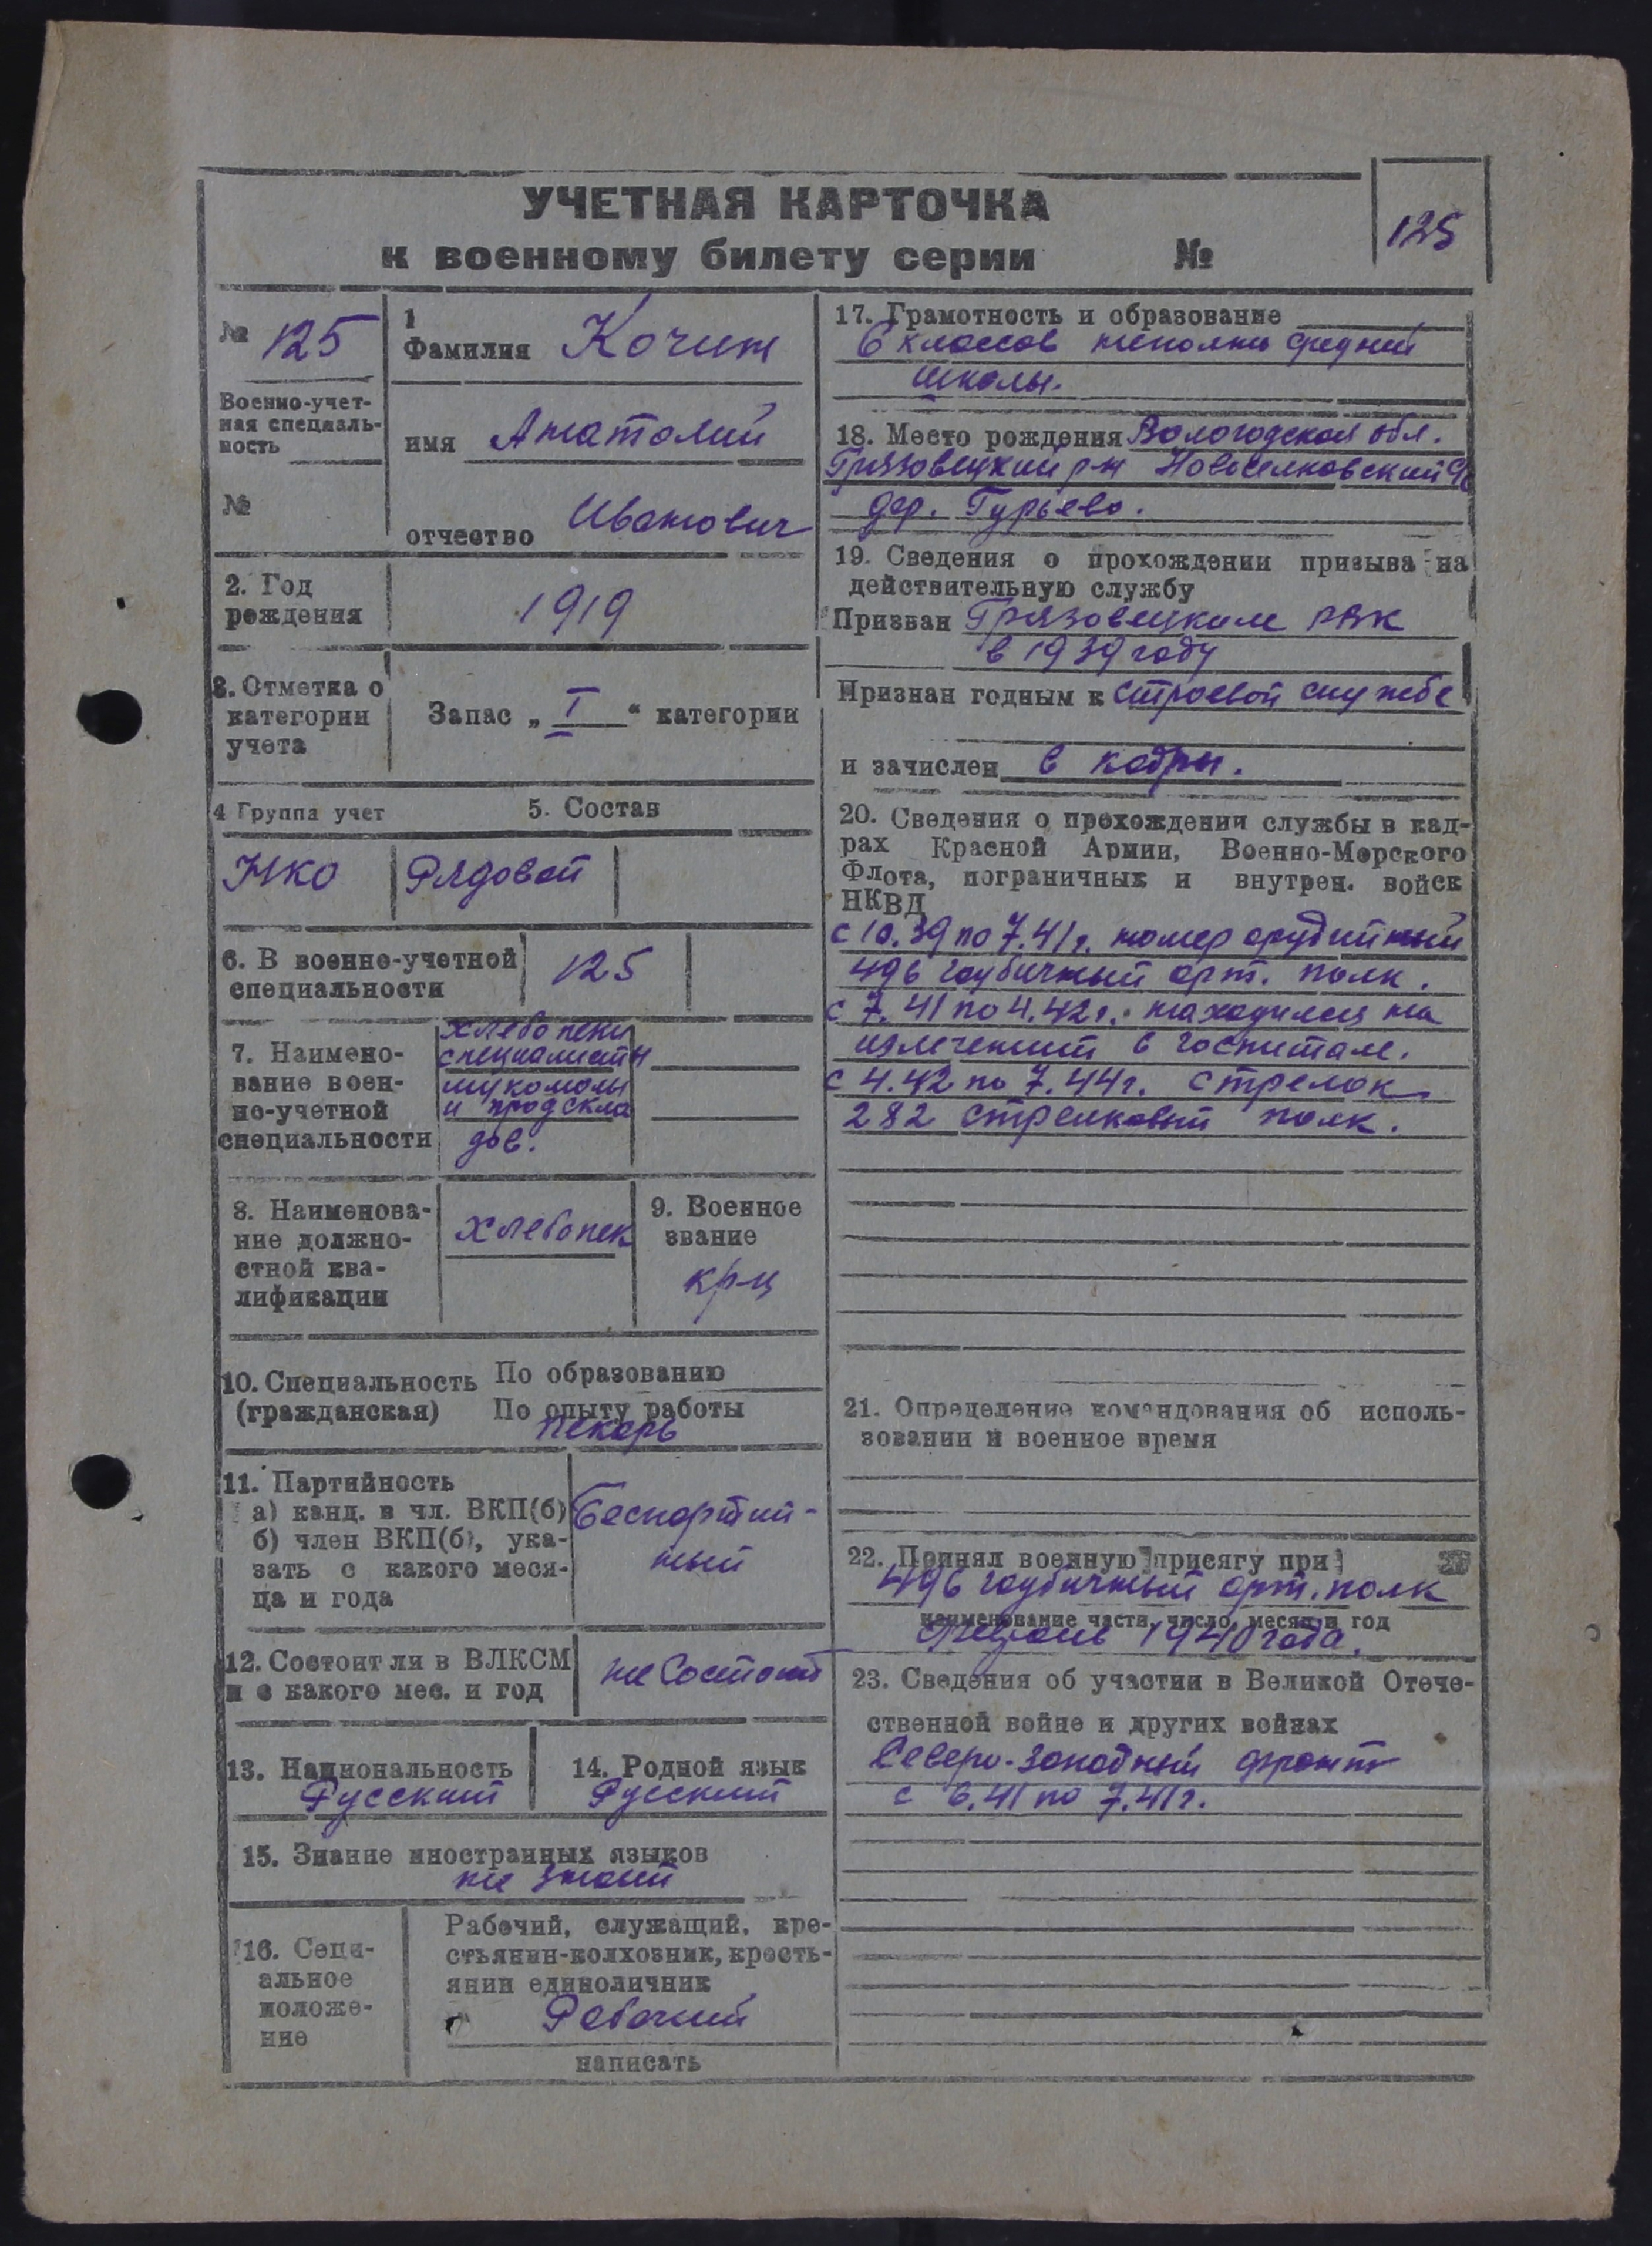 УЧЕТНАЯ КАРТОЧКА
к военному билету серии №
125
№ 125
Военно-учет-
ная специаль-
ность
№
1
Фамилия Кочин
имя Анатолий
отчество Иванович
2. Год
рождения
1919
3. Отметка о
категории
учета
Запас „ I “ категории
4 Группа учет
5. Состав
НКО
Рядовой
6. В военно-учетной
специальности
125
7. Наимено-
вание воен-
но-учетной
специальности
хлебопеки
специалисты
мукомолы
и продскла
дов.
8. Наименова-
ние должно-
стной ква-
лификации
хлебопек
9. Военное
звание
кр-ц
10. Специальность
(гражданская)
По образованию
По опыту работы
пекарь
11. Партийность
а) канд. в чл. ВКП(б)
б) член ВКП(б), ука-
зать с какого меся-
ца и года
Беспартий-
ный
12. Состоит ли в ВЛКСМ
и с какого мес. и год
не состоит
13. Национальность
Русский
14. Родной язык
Русский
15. Знание иностранных языков
не знает
16. Соци-
альное
положе-
ние
Рабочий, служащий, кре-
стьянин-колхозник, кресть-
янин единоличник
Рабочий
написать
17. Грамотность и образование
6 классов неполно средний
школы.
18. Место рождения Вологодская обл.
Грязовецкий р-н Новоселковский с/с
дер. Гурьево.
19. Сведения о прохождении призыва на
действительную службу
Призван Грязовецким РВК
в 1939 году
Признан годным к строевой службе
и зачислен в кадры.
20. Сведения о прохождении службы в кад-
рах Красной Армии, Военно-Морского
Флота, пограничных и внутрен. войск
НКВД
с 10.39 по 7.41 г. номер орудийный
496 гаубичный арт. полк.
с 7.41 по 4.42 г. находился на
излечении в госпитале.
с 4.42 по 7.44 г. стрелок
282 стрелковый полк.
21. Определение командования об исполь-
зовании в военное время
22. Принял военную присягу при
496 гаубичный арт. полк
наименование части, число, месяц и год
1940 года.
23. Сведения об участии в Великой Отече-
ственной войне и других войнах
Северо-Западный фронт
с 6.41 по 7.41 г.